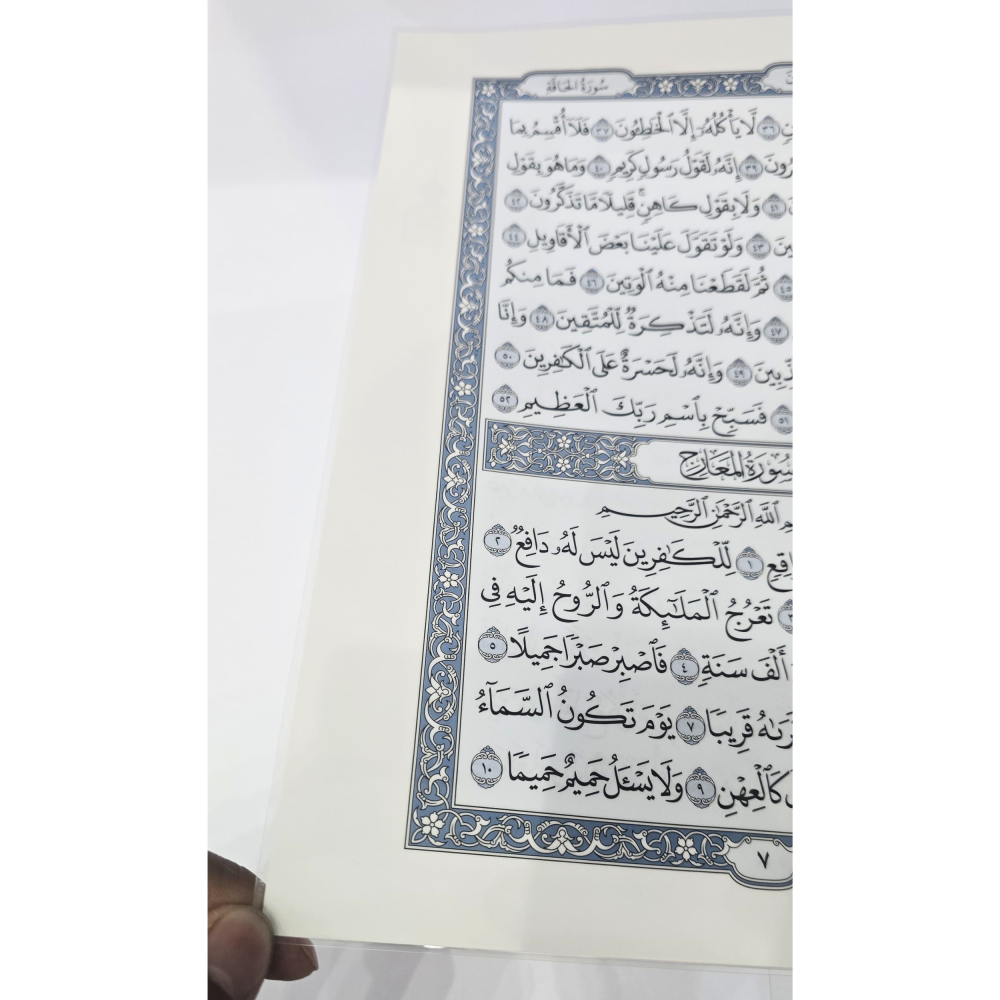 سُورَةُ الحَاقَّةِ
٣٦ لَّا يَأۡكُلُهُۥٓ إِلَّا ٱلۡخَٰطِـُٔونَ ٣٧ فَلَآ أُقۡسِمُ بِمَا
٣٩ إِنَّهُۥ لَقَوۡلُ رَسُولٖ كَرِيمٖ ٤٠ وَمَا هُوَ بِقَوۡلِ
٤١ وَلَا بِقَوۡلِ كَاهِنٖۚ قَلِيلٗا مَّا تَذَكَّرُونَ ٤٢
٤٣ وَلَوۡ تَقَوَّلَ عَلَيۡنَا بَعۡضَ ٱلۡأَقَاوِيلِ ٤٤
٤٥ ثُمَّ لَقَطَعۡنَا مِنۡهُ ٱلۡوَتِينَ ٤٦ فَمَا مِنكُم
٤٧ وَإِنَّهُۥ لَتَذۡكِرَةٞ لِّلۡمُتَّقِينَ ٤٨ وَإِنَّا
ذِّبِينَ ٤٩ وَإِنَّهُۥ لَحَسۡرَةٌ عَلَى ٱلۡكَٰفِرِينَ ٥٠
٥١ فَسَبِّحۡ بِٱسۡمِ رَبِّكَ ٱلۡعَظِيمِ ٥٢
سُورَةُ المَعَارِجِ
ٱللَّهِ ٱلرَّحۡمَٰنِ ٱلرَّحِيمِ
اقِعٖ ١ لِّلۡكَٰفِرِينَ لَيۡسَ لَهُۥ دَافِعٞ ٢
٣ تَعۡرُجُ ٱلۡمَلَٰٓئِكَةُ وَٱلرُّوحُ إِلَيۡهِ فِي
أَلۡفَ سَنَةٖ ٤ فَٱصۡبِرۡ صَبۡرٗا جَمِيلًا ٥
رَىٰهُ قَرِيبٗا ٧ يَوۡمَ تَكُونُ ٱلسَّمَآءُ
كَٱلۡعِهۡنِ ٩ وَلَا يَسۡـَٔلُ حَمِيمٌ حَمِيمٗا ١٠
٧